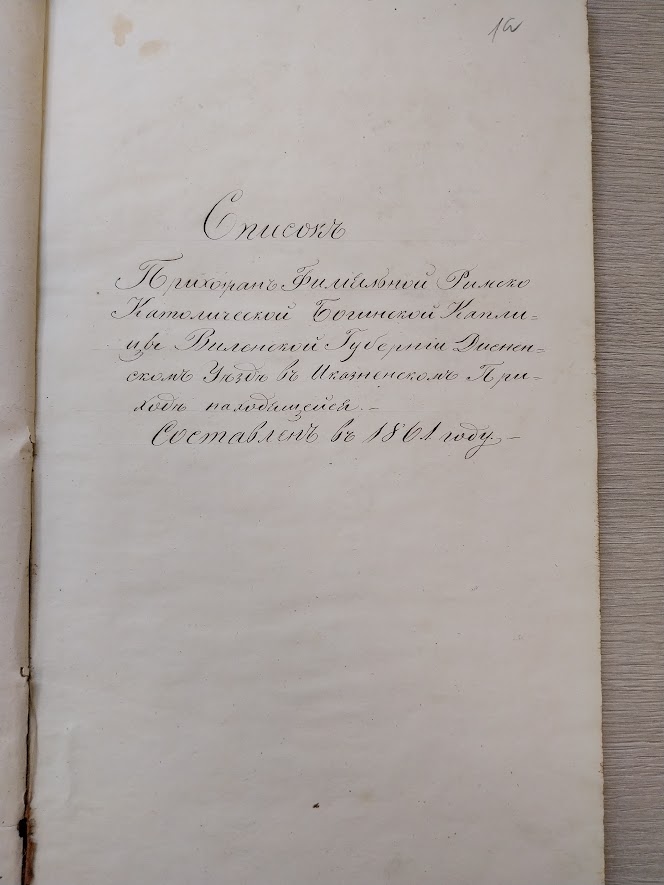 1а
Списокъ
Прихожанъ Филіяльной Римско
Католической Богинской Капли-
цѣ Виленской Губерніи Диснен-
скомъ Уѣздѣ въ Иказненскомъ При-
ходѣ находящейся. –
Составленъ въ 1861 году. –